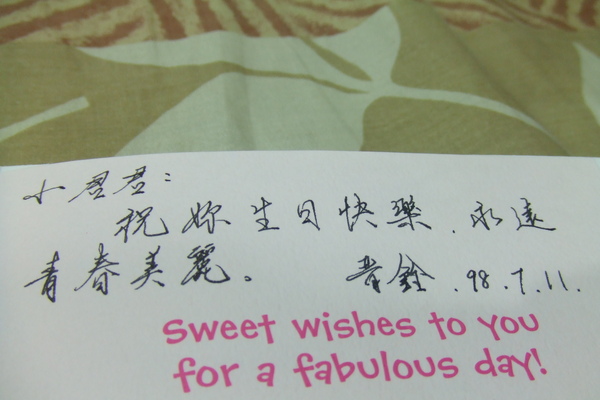 小君君：
祝妳生日快樂．永遠
青春美麗。 青銓．98.7.11.
Sweet wishes to you
for a fabulous day!